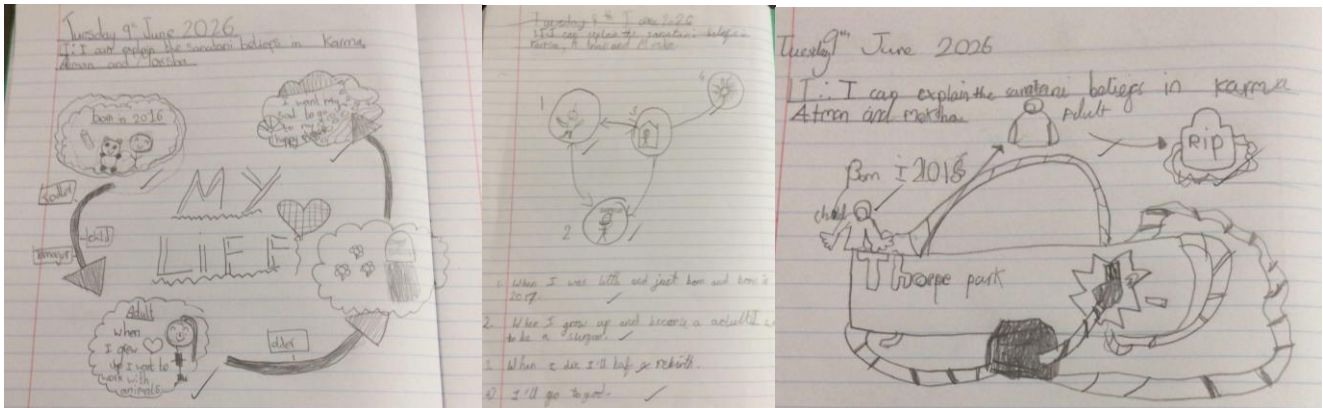 Tuesday 9th June 2026
I: I can explain the sanatani beliefs in Karma,
and Moksha.
born in 2016
I want my
soul to go
to my
happy
MY
LIFE
child
Teenager
Adult
When
I grew
up I want to
work with
animals
older
Tuesday 9th June 2026
I: I can explain the sanatani beliefs in
Karma, and
1
2
3
4
1. When I was little and just born and born in
2017.
2. When I grow up and become a adult I
to be a surgeon.
3. When I die I'll rebirth.
4) I'll go to god.
Tuesday 9th June 2026
I: I can explain the sanatani beliefs in Karma
Atman and moksha.
Adult
RIP
Born I 2016
child
Thorpe park